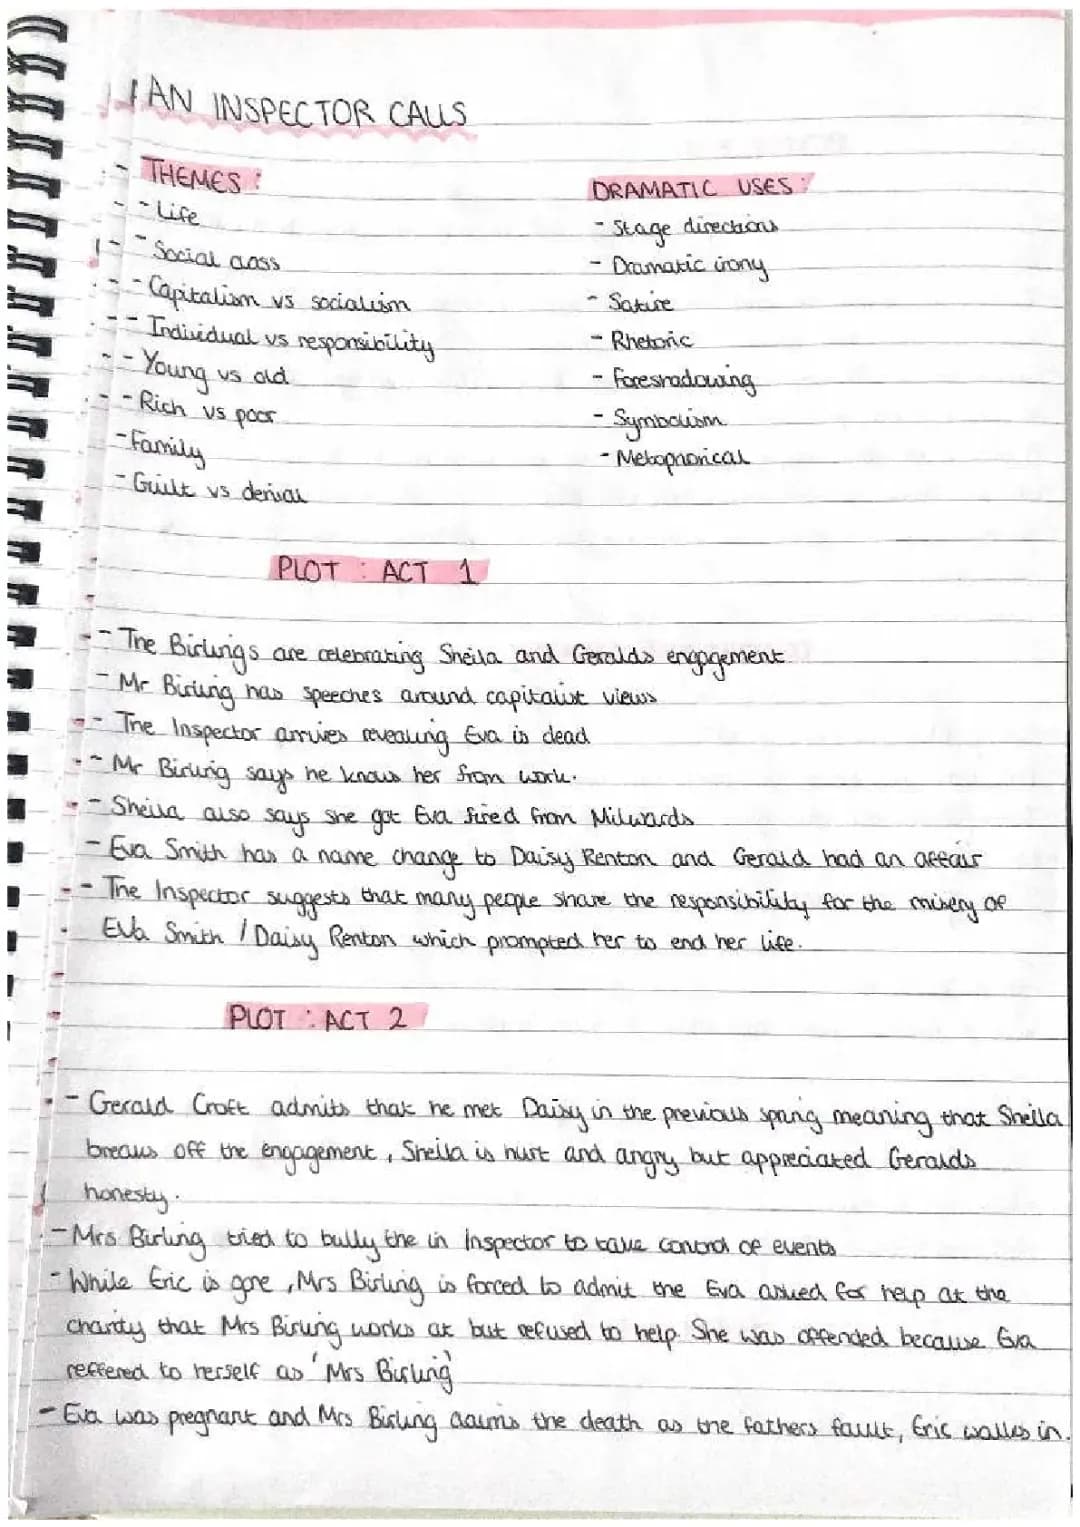 AN INSPECTOR CALLS
THEMES :
- Life
- Social class
- Capitalism vs socialism
- Individual vs responsibility
- Young vs old
- Rich vs poor
- Family
- Guilt vs denial
DRAMATIC USES :
- Stage directions
- Dramatic irony
- Satire
- Rhetoric
- Foreshadowing
- Symbolism
- Metaphorical
PLOT : ACT 1
- The Birlings are celebrating Sheila and Geralds engagement
- Mr Birling has speeches around capitalist views
- The Inspector arrives revealing Eva is dead
- Mr Birling says he knows her from work.
- Sheila also says she got Eva fired from Milwards
- Eva Smith has a name change to Daisy Renton and Gerald had an affair
- The Inspector suggests that many people share the responsibility for the misery of
Eva Smith / Daisy Renton which prompted her to end her life.
PLOT : ACT 2
- Gerald Croft admits that he met Daisy in the previous spring meaning that Sheila
breaks off the engagement, Sheila is hurt and angry but appreciated Geralds
honesty.
- Mrs Birling tried to bully the in Inspector to take control of events
- While Eric is gone, Mrs Birling is forced to admit the Eva asked for help at the
charity that Mrs Birling works at but refused to help. She was offended because Eva
reffered to herself as 'Mrs Birling'
- Eva was pregnant and Mrs Birling claims the death as the fathers fault, Eric walks in.